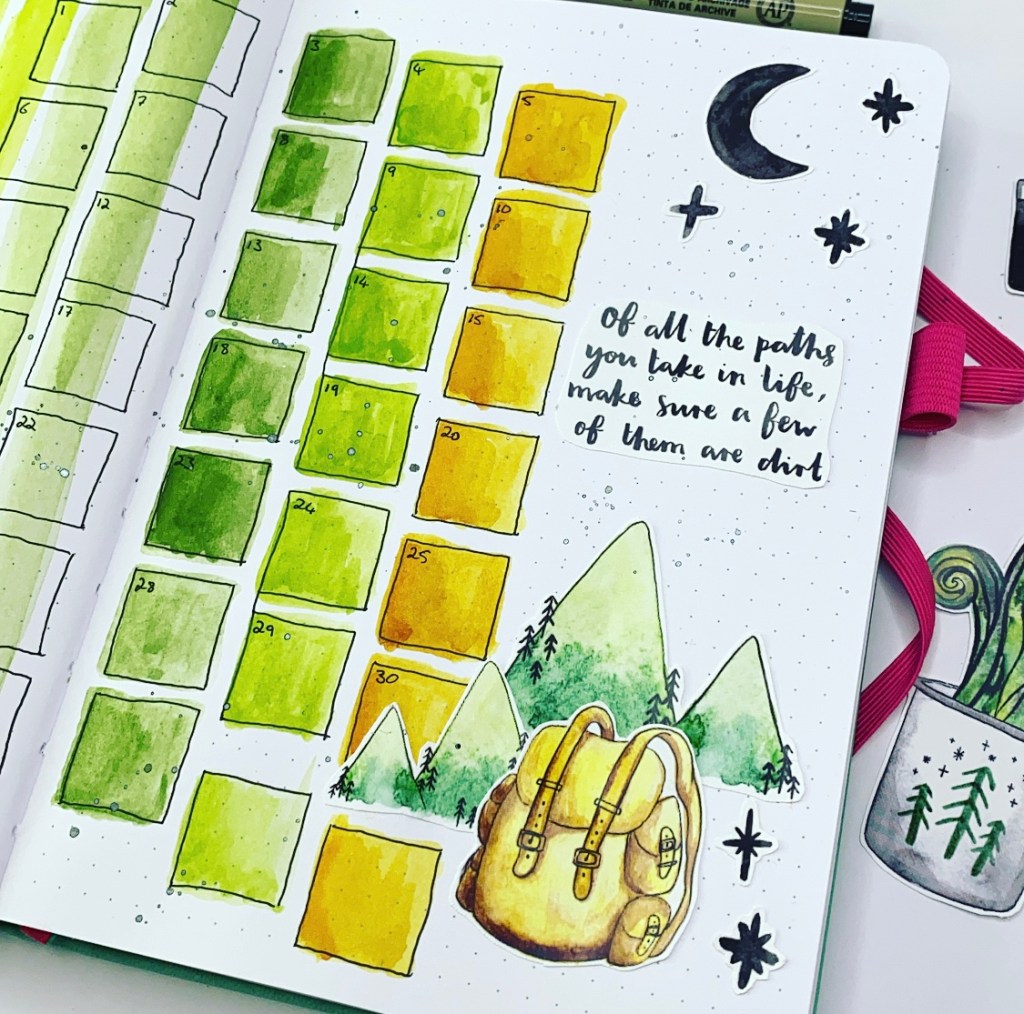 TINTA DE ARCHIVE
AP
1 2
6 7
12
17
22
3 4 5
8 9 10
13 14 15
18 19 20
23 24 25
28 29 30
Of all the paths
you take in life,
make sure a few
of them are dirt